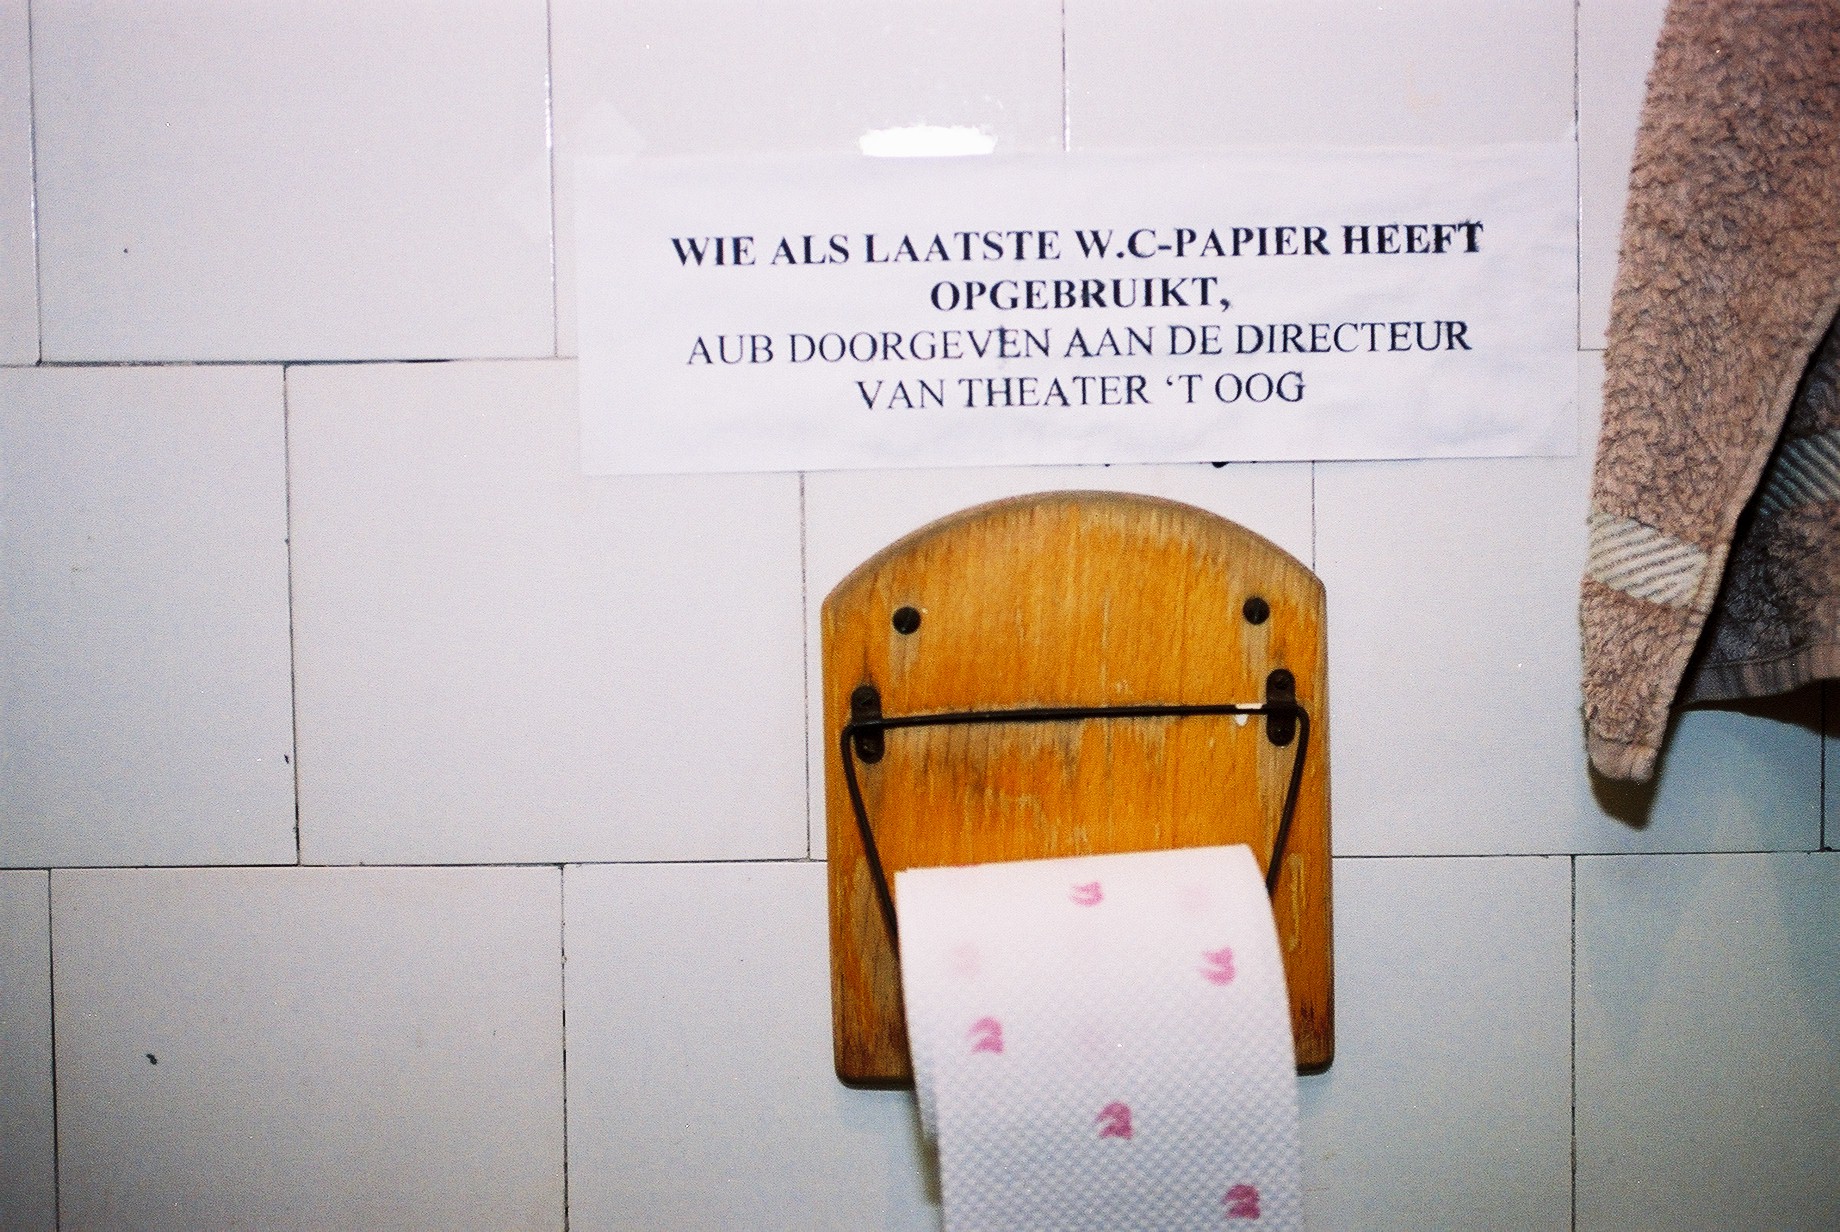 WIE ALS LAATSTE W.C-PAPIER HEEFT
OPGEBRUIKT,
AUB DOORGEVEN AAN DE DIRECTEUR
VAN THEATER ‘T OOG